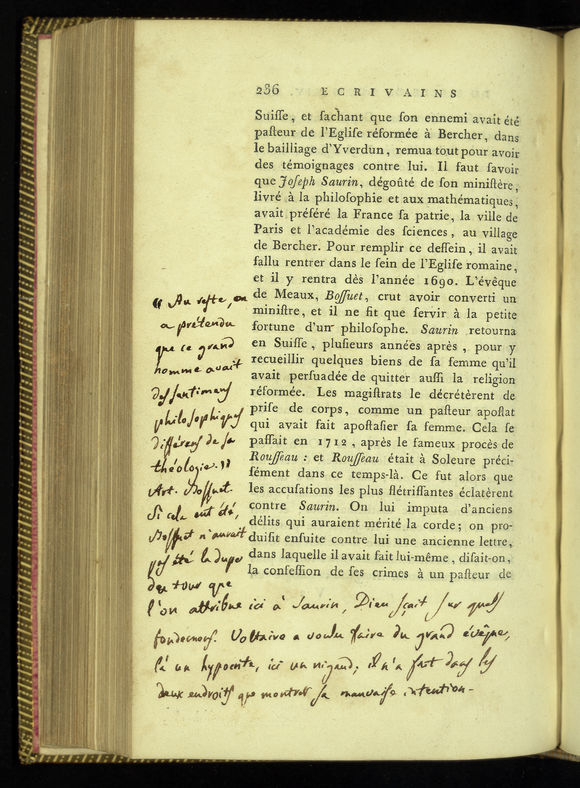 236 ECRIVAINS
Suiſſe, et ſachant que ſon ennemi avait été
paſteur de l'Egliſe réformée à Bercher, dans
le bailliage d'Yverdun, remua tout pour avoir
des témoignages contre lui. Il faut ſavoir
que Joſeph Saurin, dégoûté de ſon miniſtère,
livré à la philoſophie et aux mathématiques,
avait préféré la France ſa patrie, la ville de
Paris et l'académie des ſciences, au village
de Bercher. Pour remplir ce deſſein, il avait
fallu rentrer dans le ſein de l'Egliſe romaine,
et il y rentra dès l'année 1690. L'évêque
de Meaux, Boſſuet, crut avoir converti un
miniſtre, et il ne fit que ſervir à la petite
fortune d'un philoſophe. Saurin retourna
en Suiſſe, pluſieurs années après, pour y
recueillir quelques biens de ſa femme qu'il
avait perſuadée de quitter auſſi la religion
réformée. Les magiſtrats le décrétèrent de
priſe de corps, comme un paſteur apoſtat
qui avait fait apoſtaſier ſa femme. Cela ſe
paſſait en 1712, après le fameux procès de
Rouſſeau : et Rouſſeau était à Soleure préci-
ſément dans ce temps-là. Ce fut alors que
les accuſations les plus flétriſſantes éclatèrent
contre Saurin. On lui imputa d'anciens
délits qui auraient mérité la corde; on pro-
duiſit enſuite contre lui une ancienne lettre,
dans laquelle il avait fait lui-même, diſait-on,
la confeſſion de ſes crimes à un paſteur de
« Au reſte, on
a prétendu
que ce grand
homme avait
des ſentimens
philoſophiques
différens de ſa
théologie. »
Art. Boſſuet.
Si cela eut été,
Boſſuet n'aurait
pas été la dupe
du tour que
l'on attribue ici à Saurin, Dieu ſçait ſur quels
fondemens. Voltaire a voulu faire du grand évêque,
là un hypocrite, ici un nigaud; il n'a fait dans les
deux endroits que montrer ſa mauvaiſe intention.